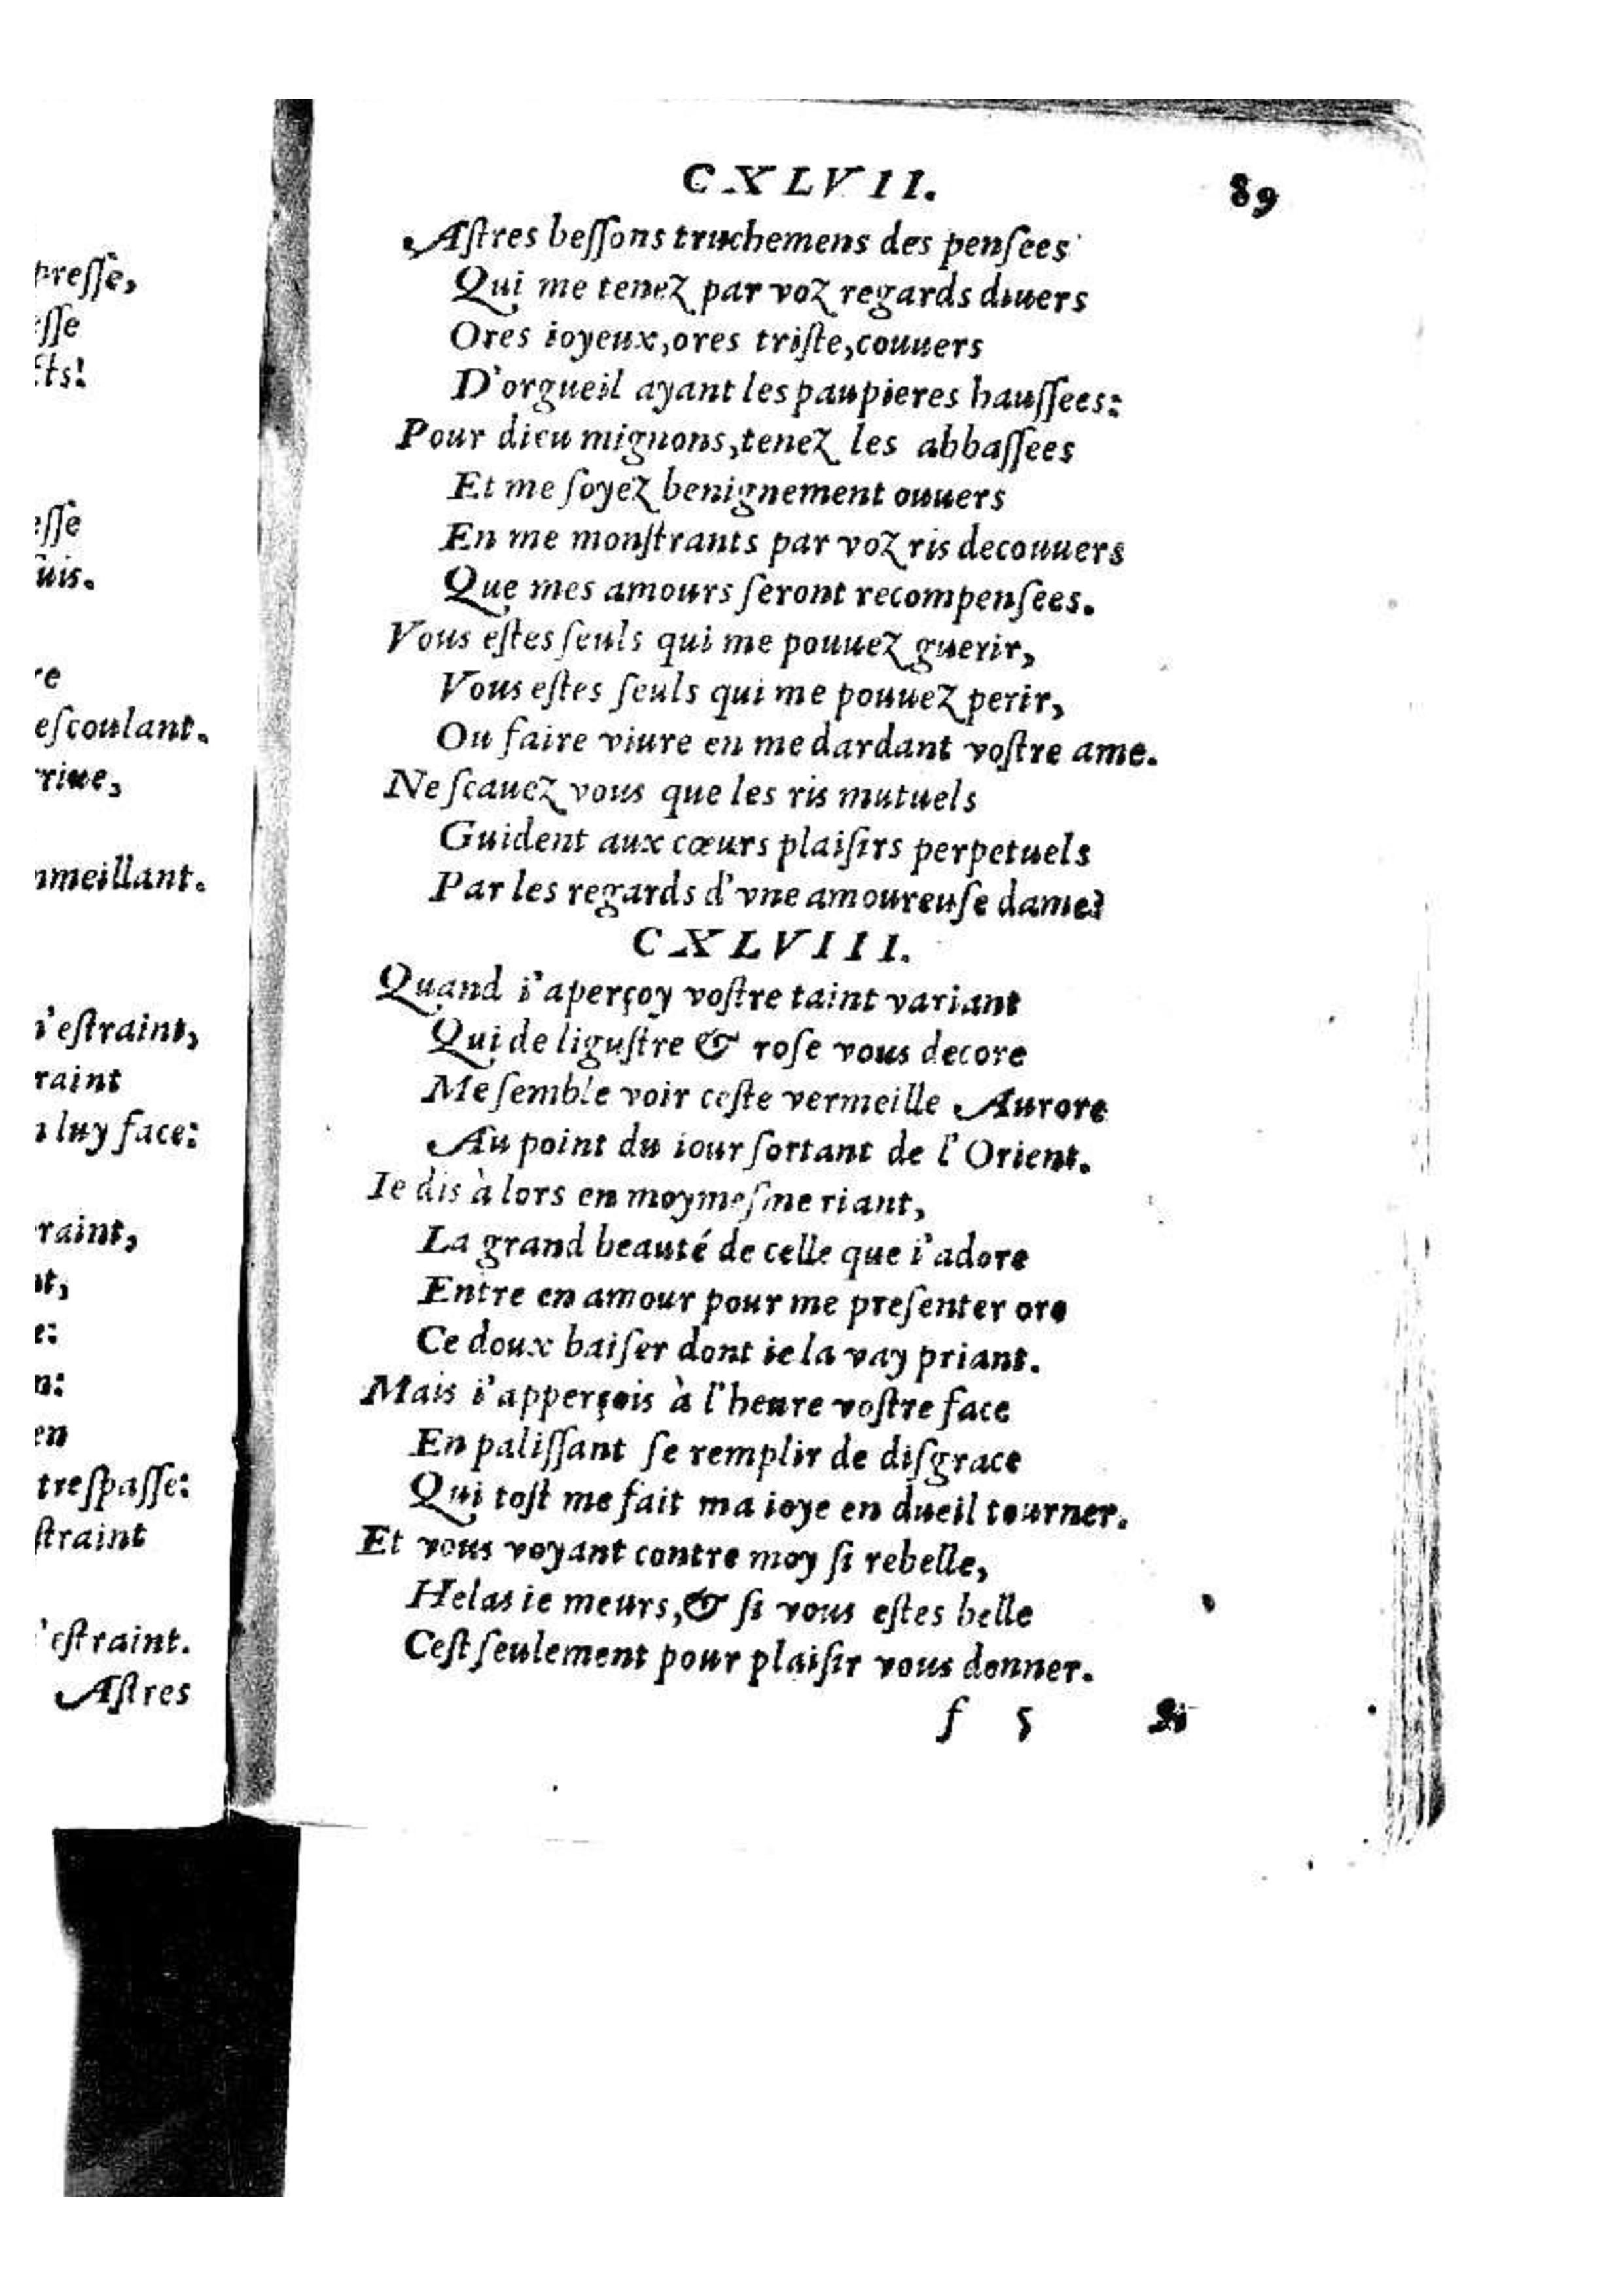 presse,
esse
ts!
esse
uis.
re
escoulant.
riue,
nmeillant.
n'estraint,
raint
luy face:
raint,
nt,
e:
n:
en
trespasse:
straint
'estraint.
Astres
CXLVII.
89
Aſtres beſſons truchemens des penſees
Qui me tenez par voz regards diuers
Ores ioyeux, ores triſte, couuers
D'orgueil ayant les paupieres hauſſees:
Pour dieu mignons, tenez les abbaſſees
Et me ſoyez benignement ouuers
En me monſtrants par voz ris decouuers
Que mes amours ſeront recompenſees.
Vous eſtes ſeuls qui me pouuez guerir,
Vous eſtes ſeuls qui me pouuez perir,
Ou faire viure en me dardant voſtre ame.
Ne ſcauez vous que les ris mutuels
Guident aux cœurs plaiſirs perpetuels
Par les regards d'vne amoureuſe dame?
CXLVIII.
Quand i'aperçoy voſtre taint variant
Qui de liguſtre & roſe vous decore
Me ſemble voir ceſte vermeille Aurore
Au point du iour ſortant de l'Orient.
Ie dis à lors en moymeſme riant,
La grand beauté de celle que i'adore
Entre en amour pour me preſenter ore
Ce doux baiſer dont ie la vay priant.
Mais i'apperçois à l'heure voſtre face
En paliſſant ſe remplir de diſgrace
Qui toſt me fait ma ioye en dueil tourner.
Et vous voyant contre moy ſi rebelle,
Helas ie meurs, & ſi vous eſtes belle
Ceſt ſeulement pour plaiſir vous donner.
f 5